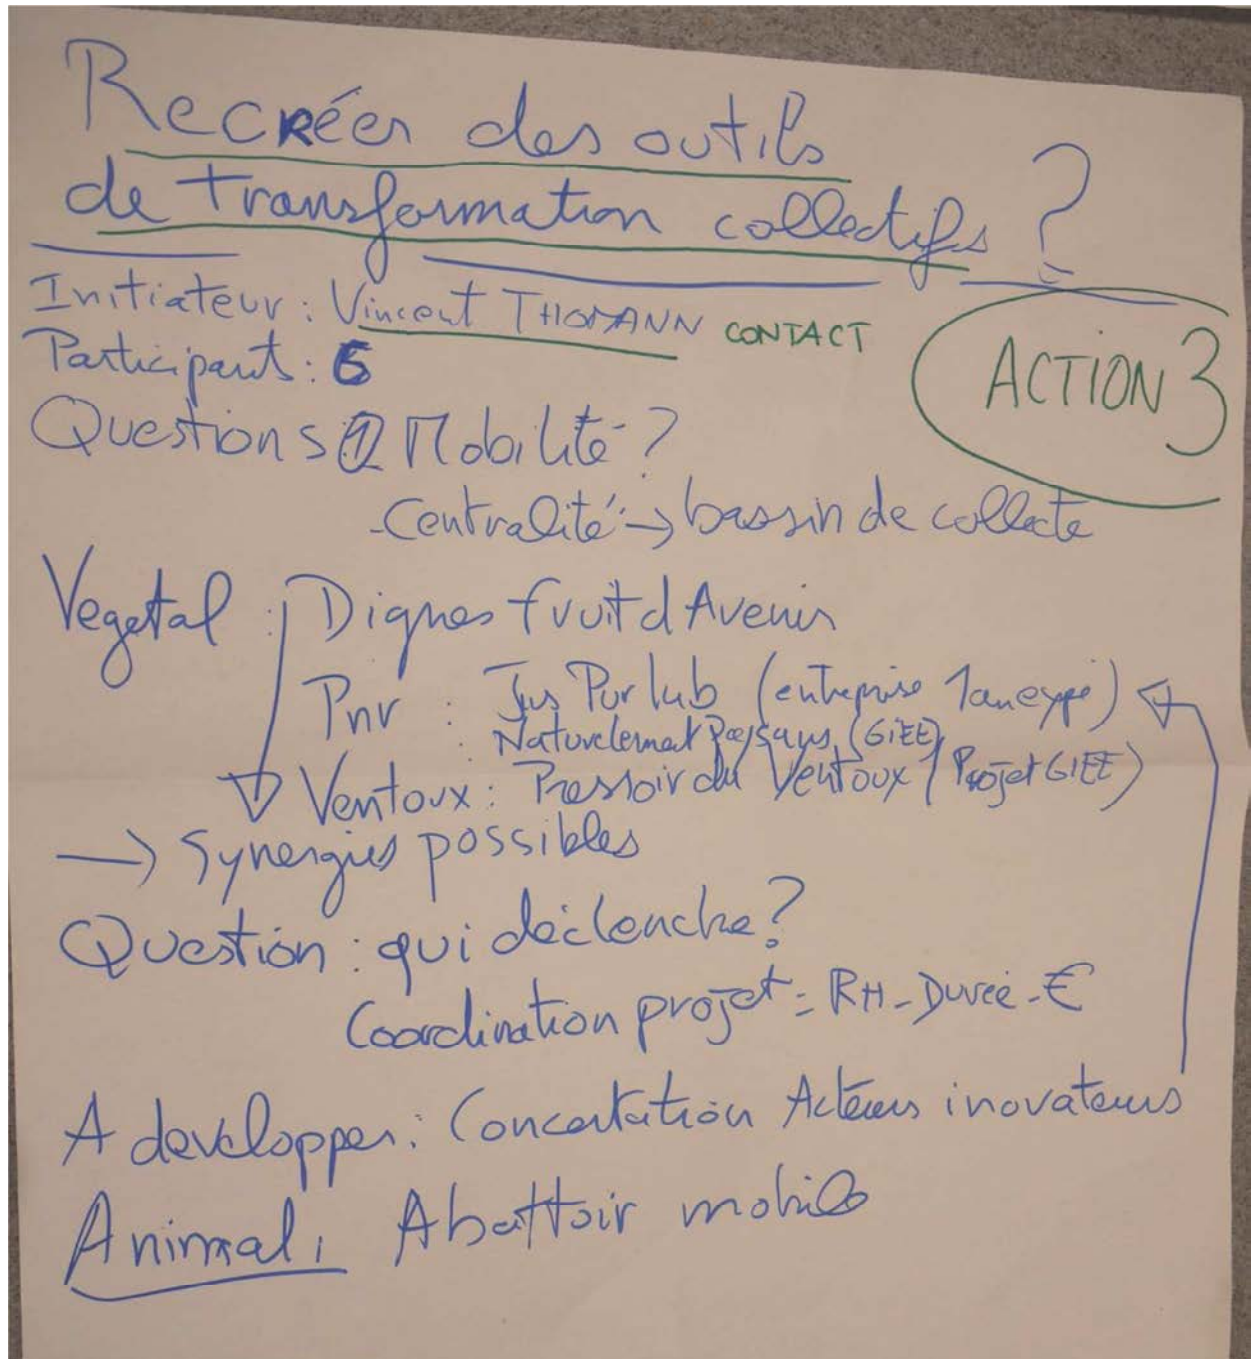 Recréer des outils
de transformation collectifs ?
Initiateur : Vincent THOMANN CONTACT
Participants : 6
ACTION 3
Questions ① Mobilité ?
- Centralité → bassin de collecte
Vegetal : Dignes fruit d Avenir
Pnr : Jus Pur lub (entreprise 1an expé)
: Naturelement Paysans (GIEE)
Ventoux : Pressoir du Ventoux (Projet GIEE)
→ Synergies possibles
Question : qui déclenche ?
Coordination projet = RH - Durée - €
A developper : Concertation Acteurs inovateurs
Animal : Abattoir mobile